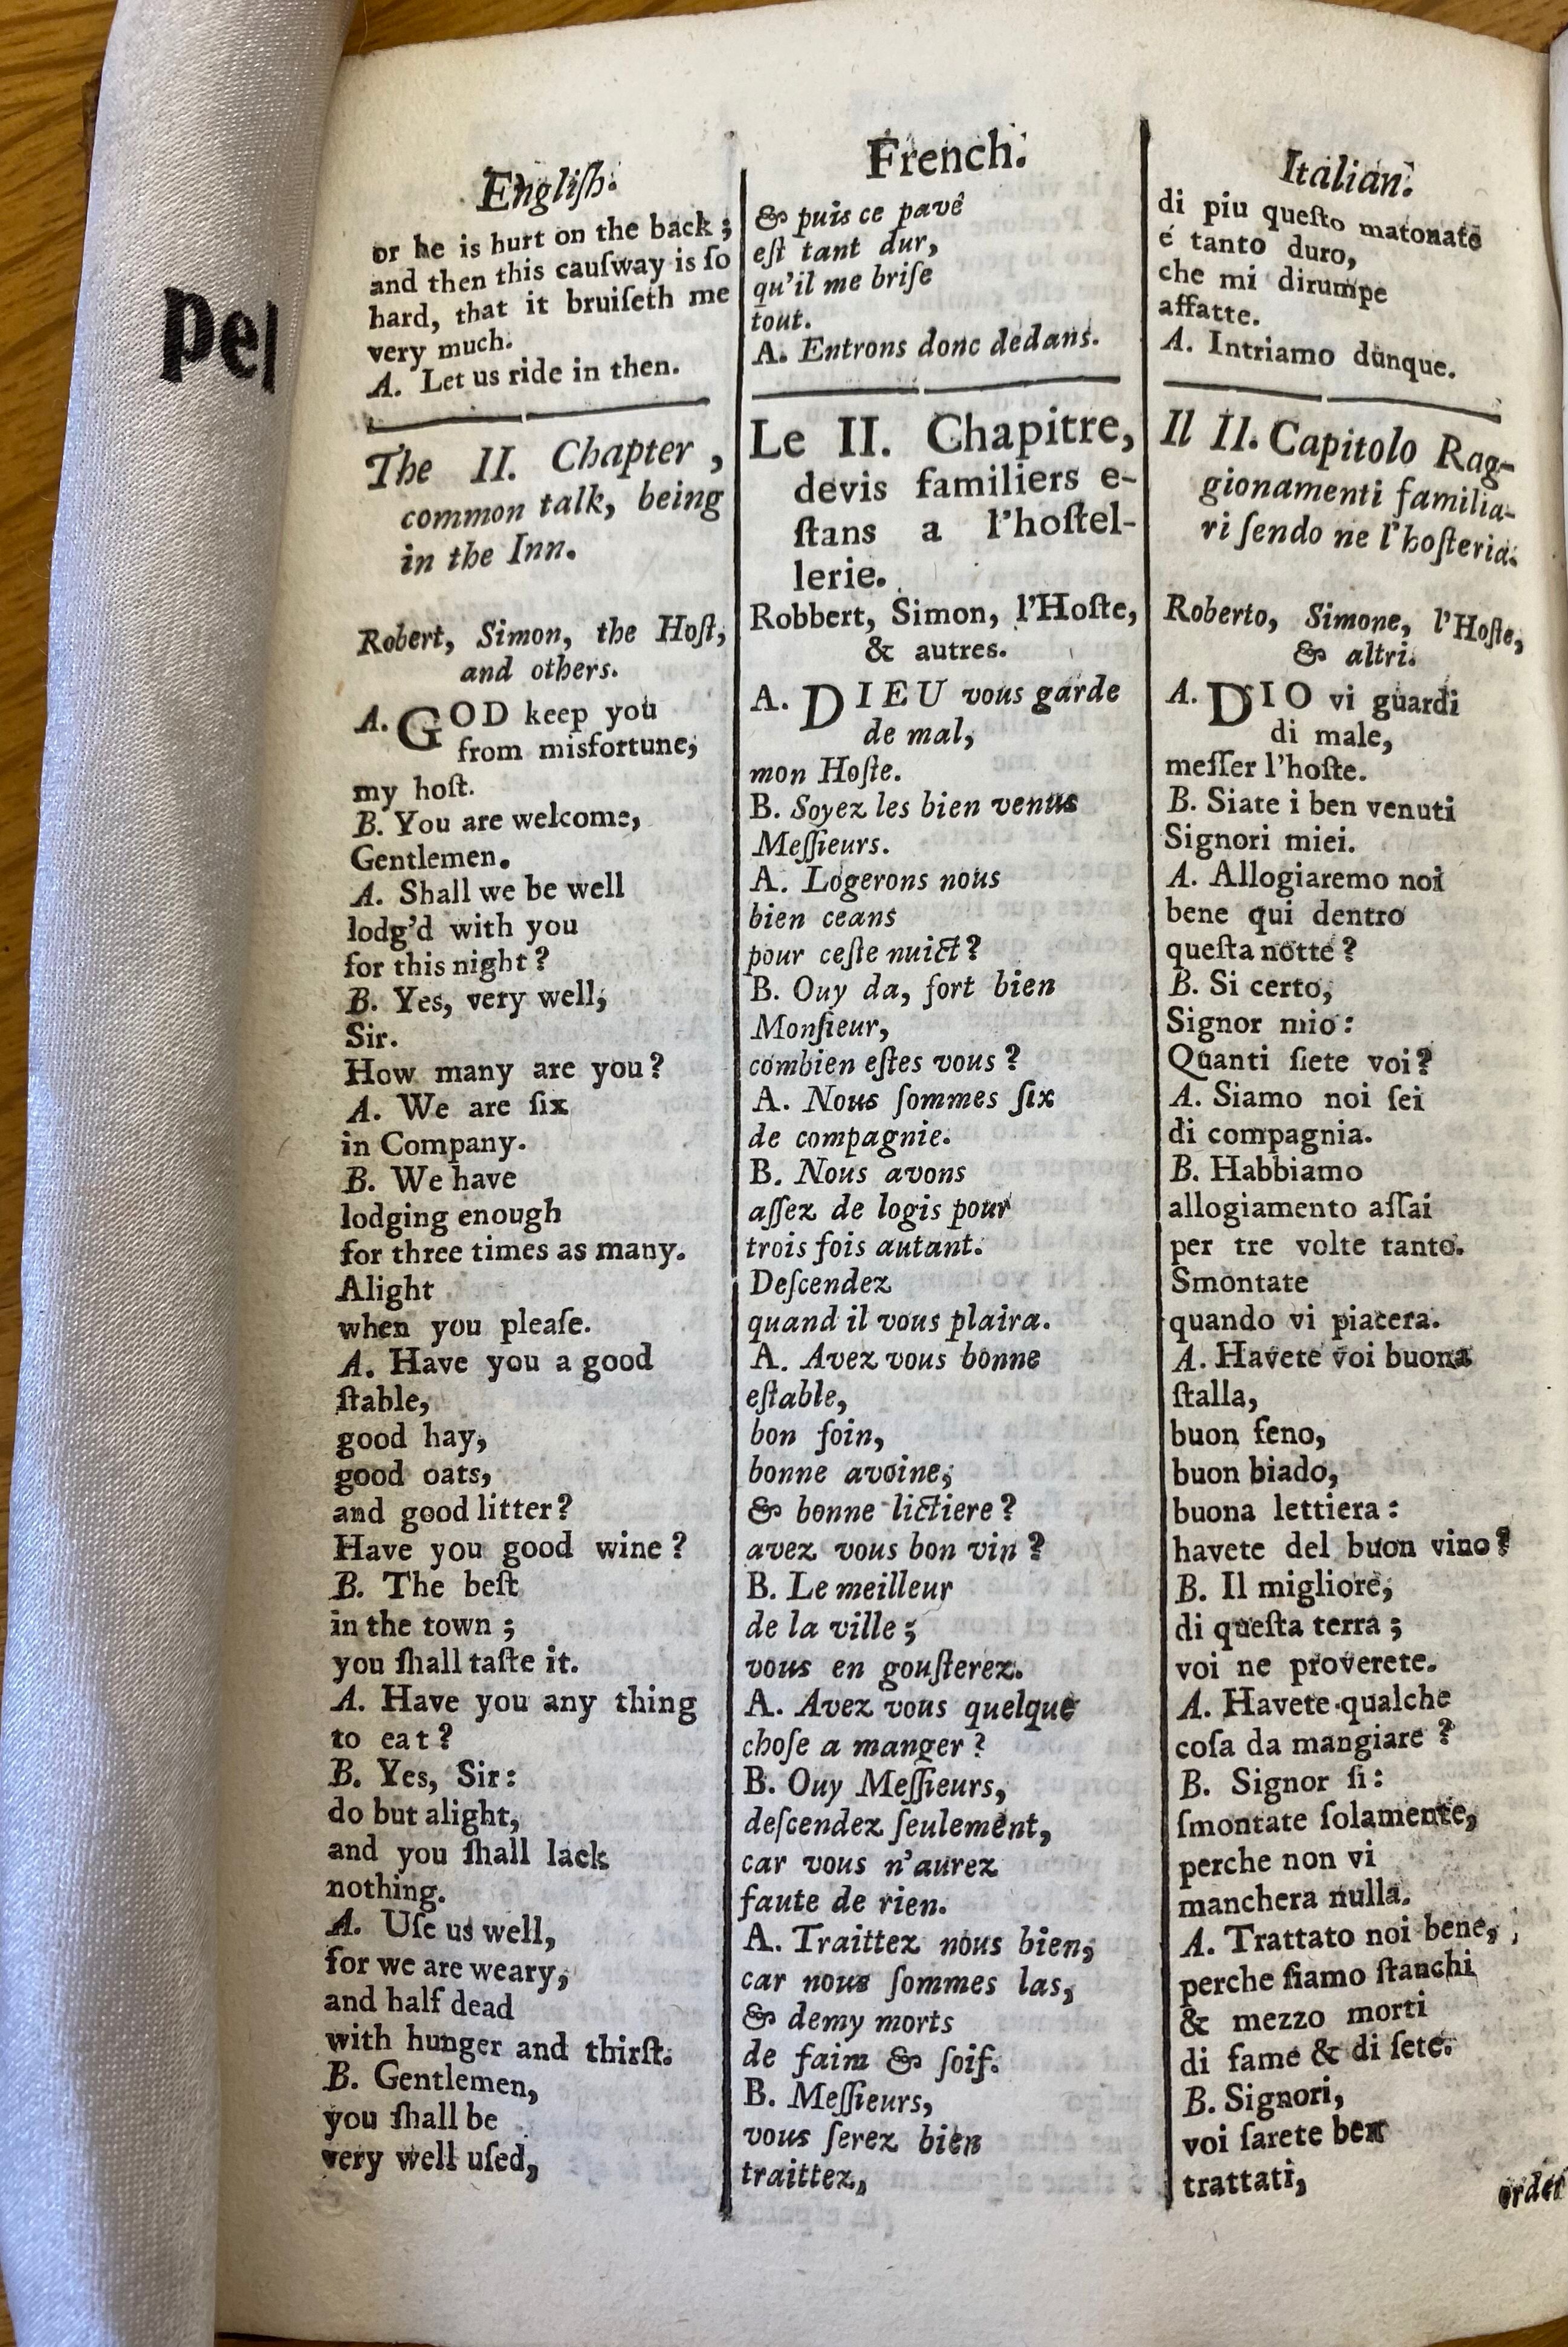 Pel
Engliſh.
or he is hurt on the back;
and then this cauſway is ſo
hard, that it bruiſeth me
very much.
A. Let us ride in then.
The II. Chapter,
common talk, being
in the Inn.
Robert, Simon, the Hoſt,
and others.
A. GOD keep you
from misfortune,
my hoſt.
B. You are welcome,
Gentlemen.
A. Shall we be well
lodg'd with you
for this night?
B. Yes, very well,
Sir.
How many are you?
A. We are ſix
in Company.
B. We have
lodging enough
for three times as many.
Alight
when you pleaſe.
A. Have you a good
ſtable,
good hay,
good oats,
and good litter?
Have you good wine?
B. The beſt
in the town;
you ſhall taſte it.
A. Have you any thing
to eat?
B. Yes, Sir:
do but alight,
and you ſhall lack
nothing.
A. Uſe us well,
for we are weary,
and half dead
with hunger and thirſt.
B. Gentlemen,
you ſhall be
very well uſed,
French.
& puis ce pavé
eſt tant dur,
qu'il me briſe
tout.
A. Entrons donc dedans.
Le II. Chapitre,
devis familiers e-
ſtans a l'hoſtel-
lerie.
Robbert, Simon, l'Hoſte,
& autres.
A. DIEU vous garde
de mal,
mon Hoſte.
B. Soyez les bien venus
Meſſieurs.
A. Logerons nous
bien ceans
pour ceſte nuict?
B. Ouy da, fort bien
Monſieur,
combien eſtes vous?
A. Nous ſommes ſix
de compagnie.
B. Nous avons
aſſez de logis pour
trois fois autant.
Deſcendez
quand il vous plaira.
A. Avez vous bonne
eſtable,
bon foin,
bonne avoine,
& bonne lictiere?
avez vous bon vin?
B. Le meilleur
de la ville;
vous en gouſterez.
A. Avez vous quelque
choſe a manger?
B. Ouy Meſſieurs,
deſcendez ſeulement,
car vous n'aurez
faute de rien.
A. Traittez nous bien,
car nous ſommes las,
& demy morts
de faim & ſoif.
B. Meſſieurs,
vous ſerez bien
traittez,
Italian.
di piu queſto matonato
é tanto duro,
che mi dirumpe
affatte.
A. Intriamo dunque.
Il II. Capitolo Rag-
gionamenti familia-
ri ſendo ne l'hoſteria.
Roberto, Simone, l'Hoſte,
& altri.
A. DIO vi guardi
di male,
meſſer l'hoſte.
B. Siate i ben venuti
Signori miei.
A. Allogiaremo noi
bene qui dentro
queſta notte?
B. Si certo,
Signor mio:
Quanti ſiete voi?
A. Siamo noi ſei
di compagnia.
B. Habbiamo
allogiamento aſſai
per tre volte tanto.
Smontate
quando vi piacera.
A. Havete voi buona
ſtalla,
buon feno,
buon biado,
buona lettiera:
havete del buon vino?
B. Il migliore,
di queſta terra;
voi ne proverete.
A. Havete qualche
coſa da mangiare?
B. Signor ſi:
ſmontate ſolamente,
perche non vi
manchera nulla.
A. Trattato noi bene,
perche ſiamo ſtanchi
& mezzo morti
di fame & di ſete.
B. Signori,
voi ſarete ben
trattati,
order